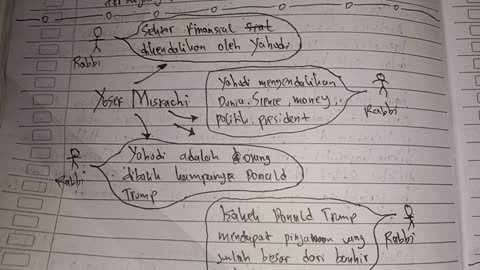 Sektor Finansial
dikendalikan oleh Yahudi
Rabbi
Yosef Misrachi
Yahudi mengendalikan
Dunia, Sience, money,
politik, president
Rabbi
Yahudi adalah orang
dibalik kampanye Donald
Trump
Rabbi
Kakek Donald Trump
mendapat pinjaman uang
jumlah besar dari
Rabbi